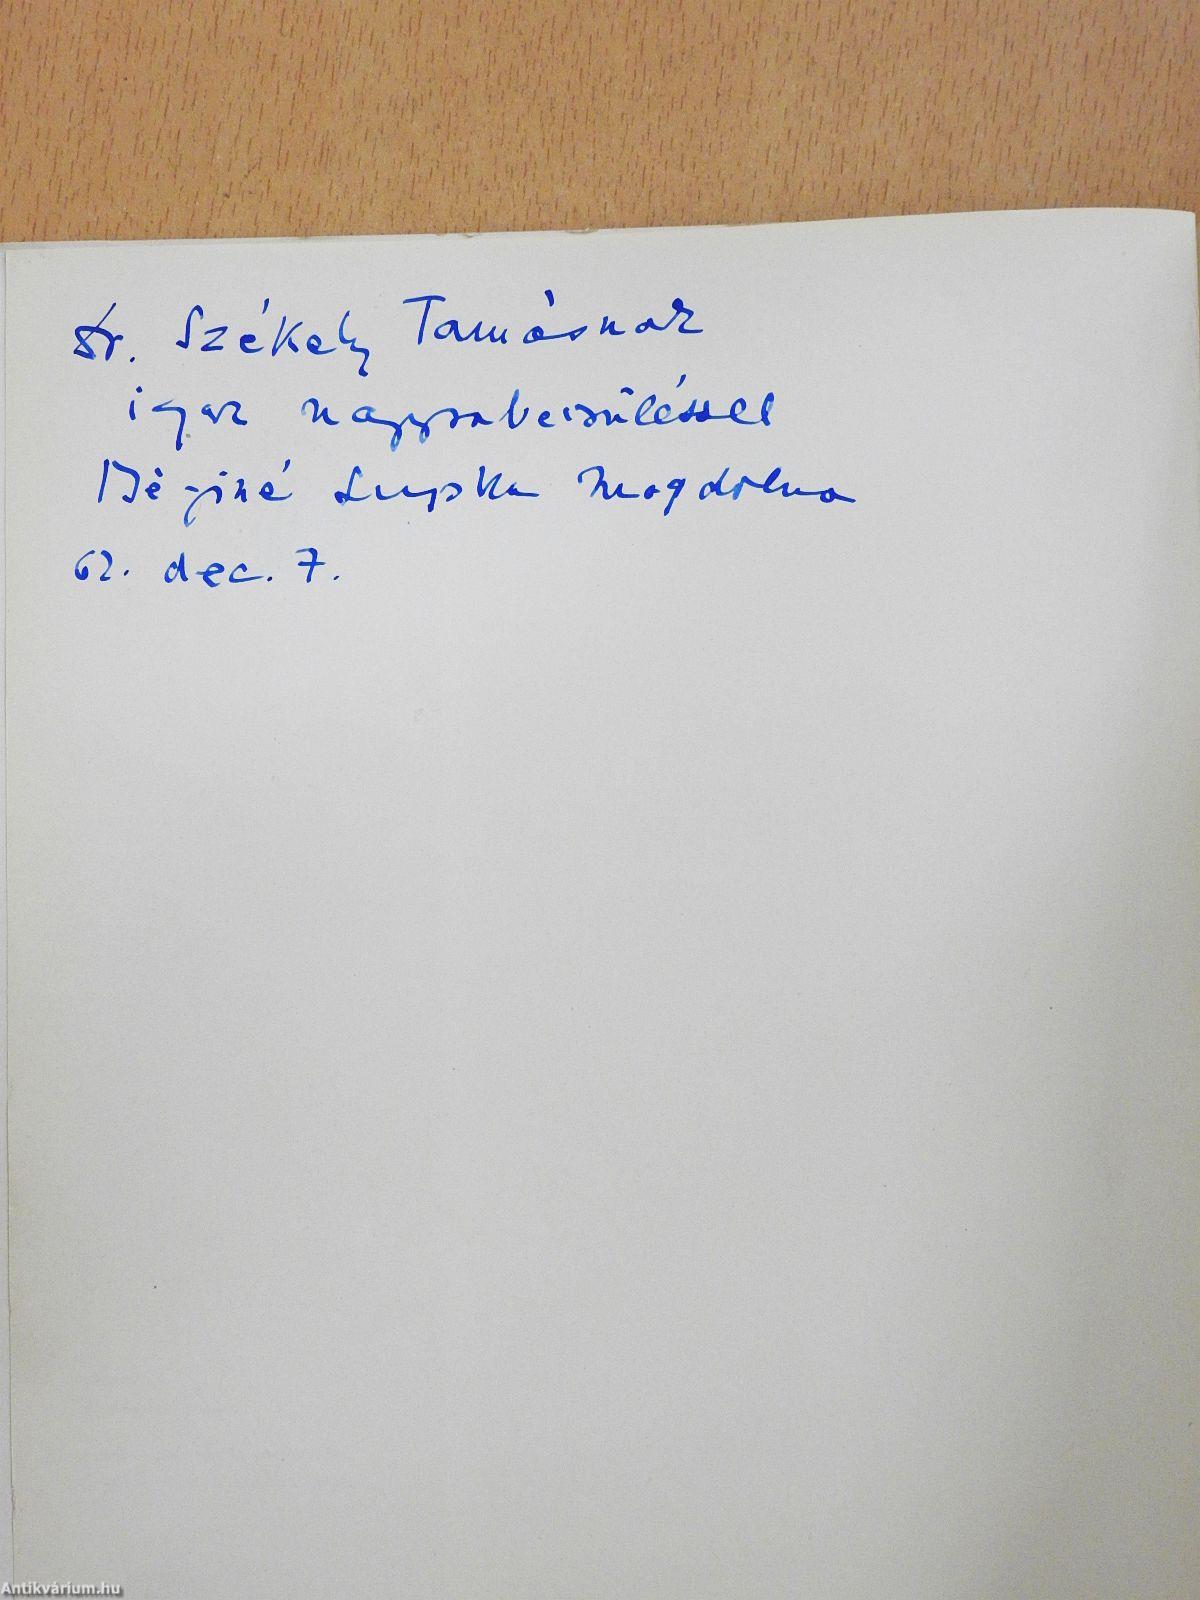 Dr. Székely Tamásnak
igaz nagyrabecsüléssel
Méginé Lupka Magdolna
62. dec. 7.
Antikvárium.hu